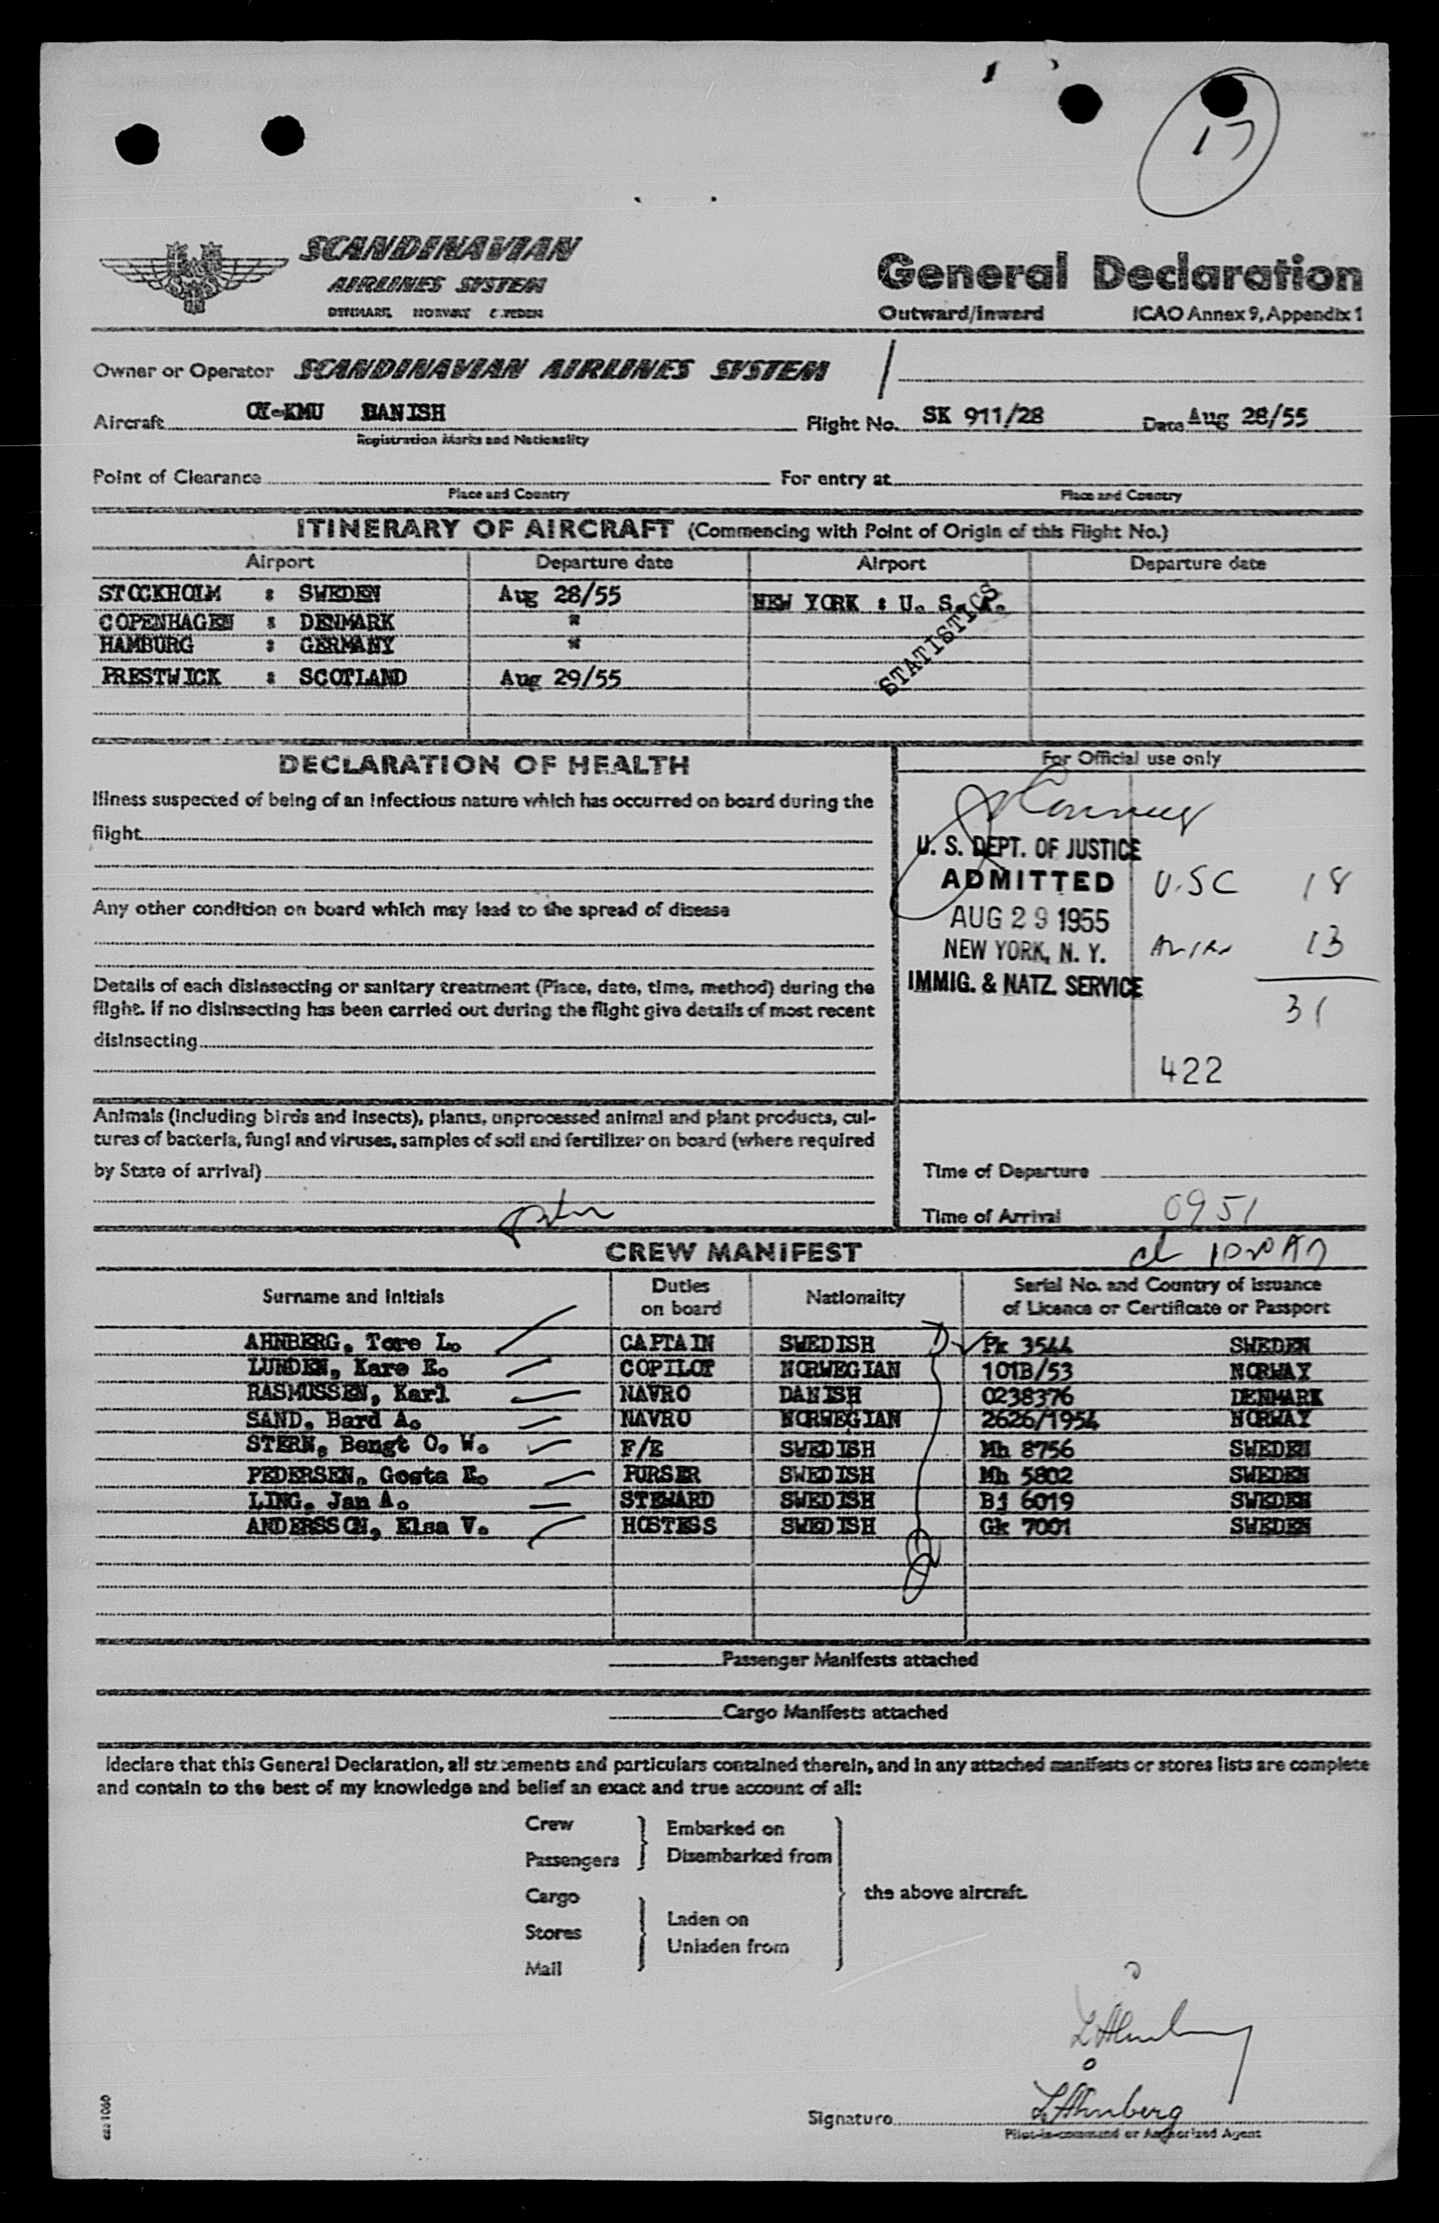 17
SCANDINAVIAN
AIRLINES SYSTEM
DENMARK NORWAY SWEDEN
General Declaration
Outward/Inward ICAO Annex 9, Appendix 1
Owner or Operator SCANDINAVIAN AIRLINES SYSTEM
Aircraft OY-KMU DANISH Flight No. SK 911/28 Date Aug 28/55
Registration Marks and Nationality
Point of Clearance For entry at
Place and Country Place and Country
ITINERARY OF AIRCRAFT (Commencing with Point of Origin of this Flight No.)
Airport Departure date Airport Departure date
STOCKHOLM : SWEDEN Aug 28/55 NEW YORK : U. S. A.
COPENHAGEN : DENMARK "
HAMBURG : GERMANY "
PRESTWICK : SCOTLAND Aug 29/55
STATISTICS
DECLARATION OF HEALTH
Illness suspected of being of an infectious nature which has occurred on board during the
flight
Any other condition on board which may lead to the spread of disease
Details of each disinsecting or sanitary treatment (Place, date, time, method) during the
flight. If no disinsecting has been carried out during the flight give details of most recent
disinsecting
Animals (including birds and insects), plants, unprocessed animal and plant products, cul-
tures of bacteria, fungi and viruses, samples of soil and fertilizer on board (where required
by State of arrival)
For Official use only
U. S. DEPT. OF JUSTICE
ADMITTED
AUG 29 1955
NEW YORK, N. Y.
IMMIG. & NATZ. SERVICE
U.SC 18
13
31
422
Time of Departure
Time of Arrival 0951
CREW MANIFEST
Surname and Initials Duties on board Nationality Serial No. and Country of issuance of Licence or Certificate or Passport
AHNBERG, Tore L. CAPTAIN SWEDISH Pk 3544 SWEDEN
LURDEN, Kare E. COPILOT NORWEGIAN 101B/53 NORWAY
RASMUSSEN, Karl NAVRO DANISH 0238376 DENMARK
SAND, Bard A. NAVRO NORWEGIAN 2626/1954 NORWAY
STERN, Bengt O. W. F/E SWEDISH Mh 8756 SWEDEN
PEDERSEN, Gosta E. PURSER SWEDISH Mh 5802 SWEDEN
LING, Jan A. STEWARD SWEDISH Bj 6019 SWEDEN
ANDERSSON, Elsa V. HOSTESS SWEDISH Gk 7001 SWEDEN
Passenger Manifests attached
Cargo Manifests attached
I declare that this General Declaration, all statements and particulars contained therein, and in any attached manifests or stores lists are complete
and contain to the best of my knowledge and belief an exact and true account of all:
Crew
Passengers
Embarked on
Disembarked from
Cargo
Stores
Mail
Laden on
Unladen from
the above aircraft.
L Ahnberg
Signature L Ahnberg
Pilot-in-command or Authorized Agent